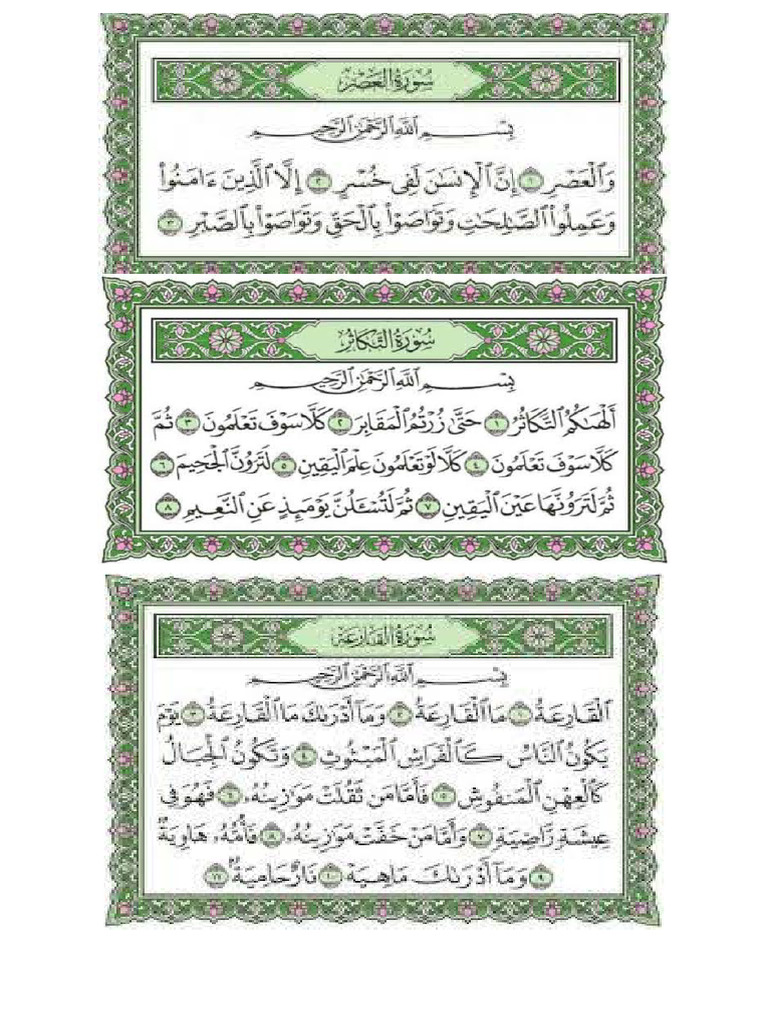 سُورَةُ العَصْرِ
بِسْمِ ٱللَّهِ ٱلرَّحْمَٰنِ ٱلرَّحِيمِ
وَٱلْعَصْرِ ١ إِنَّ ٱلْإِنسَٰنَ لَفِى خُسْرٍ ٢ إِلَّا ٱلَّذِينَ ءَامَنُوا۟
وَعَمِلُوا۟ ٱلصَّٰلِحَٰتِ وَتَوَاصَوْا۟ بِٱلْحَقِّ وَتَوَاصَوْا۟ بِٱلصَّبْرِ ٣
سُورَةُ التَّكَاثُرِ
بِسْمِ ٱللَّهِ ٱلرَّحْمَٰنِ ٱلرَّحِيمِ
أَلْهَىٰكُمُ ٱلتَّكَاثُرُ ١ حَتَّىٰ زُرْتُمُ ٱلْمَقَابِرَ ٢ كَلَّا سَوْفَ تَعْلَمُونَ ٣ ثُمَّ
كَلَّا سَوْفَ تَعْلَمُونَ ٤ كَلَّا لَوْ تَعْلَمُونَ عِلْمَ ٱلْيَقِينِ ٥ لَتَرَوُنَّ ٱلْجَحِيمَ ٦
ثُمَّ لَتَرَوُنَّهَا عَيْنَ ٱلْيَقِينِ ٧ ثُمَّ لَتُسْـَٔلُنَّ يَوْمَئِذٍ عَنِ ٱلنَّعِيمِ ٨
سُورَةُ القَارِعَةِ
بِسْمِ ٱللَّهِ ٱلرَّحْمَٰنِ ٱلرَّحِيمِ
ٱلْقَارِعَةُ ١ مَا ٱلْقَارِعَةُ ٢ وَمَآ أَدْرَىٰكَ مَا ٱلْقَارِعَةُ ٣ يَوْمَ
يَكُونُ ٱلنَّاسُ كَٱلْفَرَاشِ ٱلْمَبْثُوثِ ٤ وَتَكُونُ ٱلْجِبَالُ
كَٱلْعِهْنِ ٱلْمَنفُوشِ ٥ فَأَمَّا مَن ثَقُلَتْ مَوَٰزِينُهُۥ ٦ فَهُوَ فِى
عِيشَةٍ رَّاضِيَةٍ ٧ وَأَمَّا مَنْ خَفَّتْ مَوَٰزِينُهُۥ ٨ فَأُمُّهُۥ هَاوِيَةٌ
٩ وَمَآ أَدْرَىٰكَ مَا هِيَهْ ١٠ نَارٌ حَامِيَةٌۢ ١١